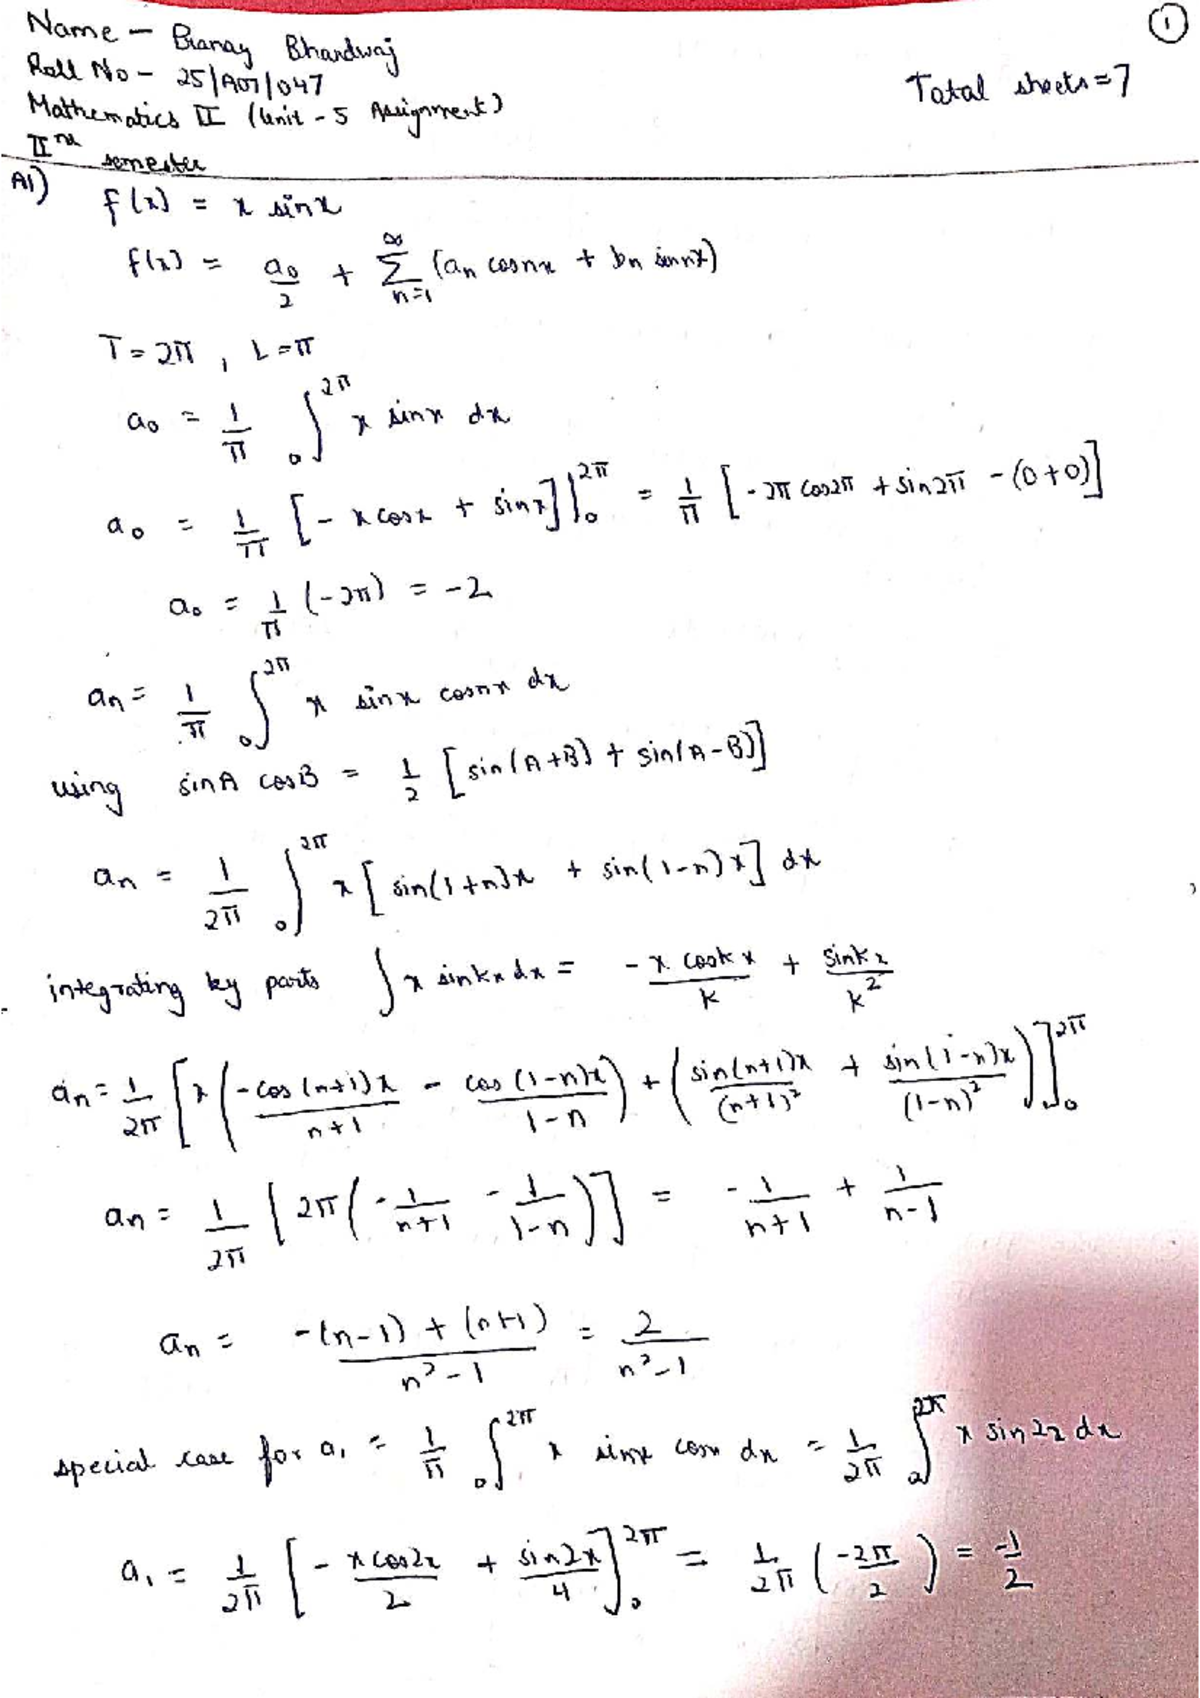 ①
Name - Pranay Bhardwaj
Roll No - 25/A07/047
Total sheets = 7
Mathematics II (Unit - 5 Assignment)
IInd semester
A1) f(x) = x sinx
f(x) = a₀/2 + ∑_{n=1}^{∞} (an cosnx + bn sinnx)
T = 2π , L = π
a₀ = 1/π ∫₀^{2π} x sinx dx
a₀ = 1/π [- x cosx + sinx]|₀^{2π} = 1/π [- 2π cos2π + sin2π - (0+0)]
a₀ = 1/π (-2π) = -2
an = 1/π ∫₀^{2π} x sinx cosnx dx
using sinA cosB = 1/2 [sin(A+B) + sin(A-B)]
an = 1/2π ∫₀^{2π} x [sin(1+n)x + sin(1-n)x] dx
integrating by parts ∫ x sinkx dx = - x coskx/k + sinkx/k²
an = 1/2π [x (-cos(n+1)x/n+1 - cos(1-n)x/1-n) + (sin(n+1)x/(n+1)² + sin(1-n)x/(1-n)²)]₀^{2π}
an = 1/2π [2π(-1/n+1 - 1/1-n)] = -1/n+1 + 1/n-1
an = -(n-1) + (n+1)/n²-1 = 2/n²-1
special case for a₁ = 1/π ∫₀^{2π} x sinx cosx dx = 1/2π ∫₀^{2π} x sin2x dx
a₁ = 1/2π [- x cos2x/2 + sin2x/4]₀^{2π} = 1/2π (-2π/2) = -1/2